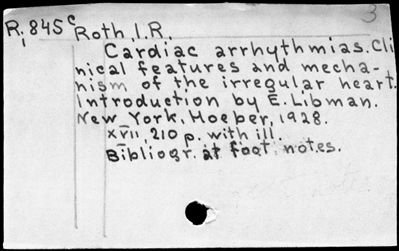 3
R,845c Roth, I.R.
Cardiac arrhythmias. Cli
nical features and mecha-
nism of the irregular heart.
Introduction by E. Libman.
New York, Hoeber, 1928.
XVII, 210 p. with ill.
Bibliogr. at foot notes.